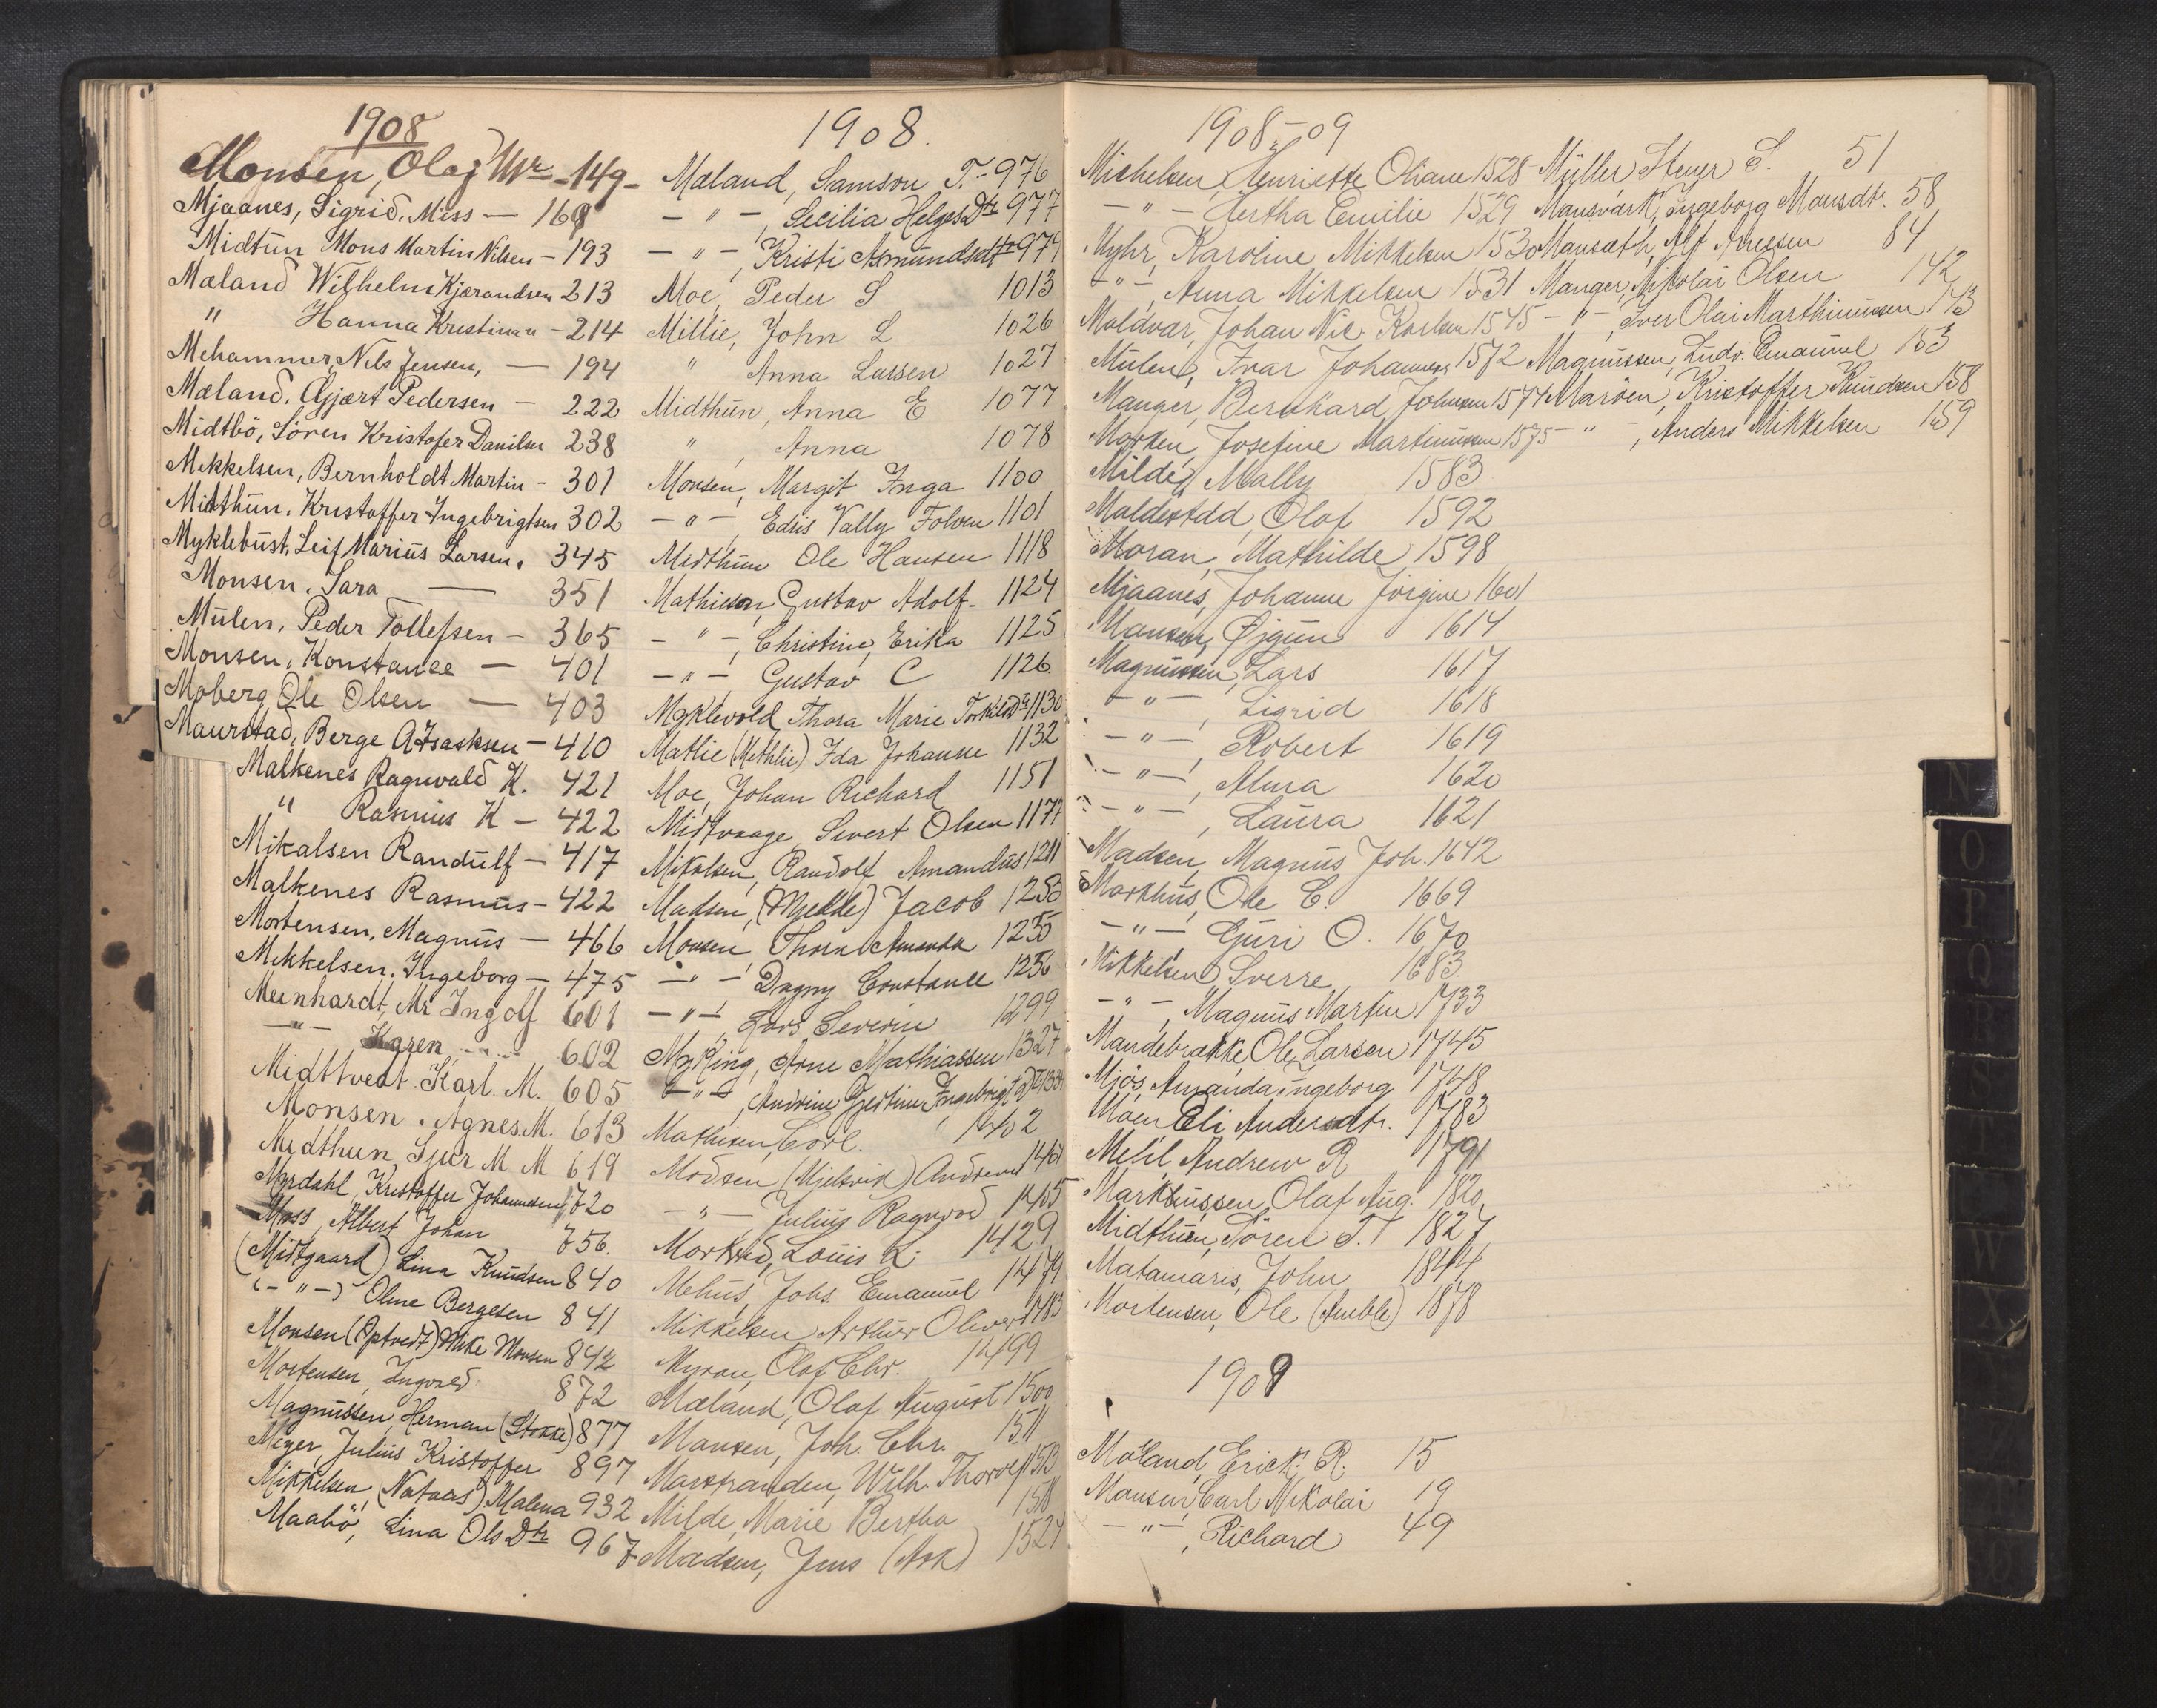 1908
Monsen, Olaf Mr - 149 -
Mjaanes, Sigrid. Miss — 169
Midtun Mons Martin Nilsen - 193
Mæland Wilhelm Kjærandsen 213
" Hanna Kristinan - 214
Mehammer, Nils Jensen, — 194
Mæland. Gjært Pedersen - 222
Midtbö, Sören Kristofer Danilsen 238
Mikkelsen, Bernholdt Martin - 301
Midthun. Kristoffer Ingebrigtsen 302
Myklebust, Leif Marius Larsen. 345
Monsen. Sara — 351
Mulen, Peder Tollefsen - 365
Monsen, Konstance — 401
Moberg Ole Olsen — 403
Maurstad, Berge A Isaksen - 410
Malkenes Ragnvald K. 421
" Rasmus K - 422
Mikalsen Randulf - 417
Malkenes Rasmus - 422
Mortensen, Magnus — 466
Mikkelsen. Ingeborg - 475
Meinhardt, Mr Ingolf 601
— " — Karen 602
Midttvedt. Karl. M. 605
Monsen. Agnes M. 613
Midthun Sjur M M 619
Myrdahl, Kristoffer Johannesen 720
Moss, Albert Johan 756.
(Midtgaard) Lina Knudsen 840
(- " -) Oline Bergesen 841
Monsen (Optvedt) Mike Monsen 842
Mortensen, Ingvald 872
Magnussen, Herman (Stokke) 877
Meyer, Julius Kristoffer 897
Mikkelsen, (Nataas) Malena 932
Maabö, Lina Ols Dtr 967
1908.
Mæland, Samson T. - 976
— " —, Secilia Helges Dtr 977
— " —, Kristi Amundsdtr 979
Moe, Peder S 1013
Millie, John L 1026
" Anna Larsen 1027
Midthun, Anna E 1077
" , Anna 1078
Monsen, Margit Inga 1100
— " —, Edis Vally Folven 1101
Midthun Ole Hansen 1118
Mathiesen, Gustav Adolf - 1124
— " —, Christine, Erika 1125
— " — Gustav C 1126
Myklevold Thora Marie Torkilsdtr 1130
Matlie (Methlie) Ida Johanne 1132
Moe, Johan Richard 1151
Midtvaage, Sivert Olsen 1177
Mikalsen, Randolf Amandus 1211
Madsen, (Mjelde) Jacob 1253
Monsen Thora Amanda 1255
— " — Dagny Constance 1256
— " —, Lars Severin 1299
Myking, Arne Mathiassen 1327
— " —, Andrine Gjertine Ingebrigtsdtr
Mathisen, Carl. 1402
Madsen (Mjelsvik) Andreas
— " — Julius Ragnvod 1405
Morstad, Louis L. 1429
Mehus, Johs Emanuel 1479
Mikkelsen, Arthur Olivert 1483
Myran, Olaf Chr. 1499
Mæland, Olaf August 1500
Mansen, Joh. Chr. 1511
Marstranden, Wilh. Thorolf 1513
Milde, Marie Bertha 1518
Madsen, Jens (Ask) 1527
1908-09
Michelsen, Henriette Oliane 1528
— " — Hertha Emilie 1529
Myhr, Karoline Mikkelsen 1530
— " —, Anna Mikkelsen 1531
Moldvær, Johan Nic. Karlsen 1545
Mulen, Ivar Johannes 1572
Manger, Bernhard Johnsen 1574
Morken, Josefine Martinussen 1575
Milde, Mally 1583
Maldestad, Olaf 1592
Moran, Mathilde 1598
Mjaanes, Johanne Jörgine 1601
Mansen, Öjgun 1614
Magnussen, Lars 1617
— " —, Sigrid 1618
— " —, Robert 1619
— " —, Alma 1620
— " —, Laura 1621
Madsen, Magnus Joh. 1642
Markhus, Ole C. 1669
— " — Guri O. 1670
Mikkelsen, Sverre 1683
— " —, Magnus Martin 1733
Mandebrække, Ole Larsen 1745
Mjös, Amanda Ingeborg 1748
Moen Eli Andersdtr. 1783
Melil, Andrew R 1791
Markhussen, Olaf Aug. 1820
Midthun, Sören S. T 1827
Matamaris, John 1844
Mortensen, Ole (Amble) 1878
1909
Moland, Erick R. 15
Monsen, Carl Nikolai 19
— " —, Richard 49
Müller Steuer S. 51
Mansvark, Ingeborg Monsdt. 58
Mansæth, Alf Areesen 84
Manger, Nikolai Olsen 142
— " —, Iver Olai Marthinussen 143
Magnussen, Ludv. Emanuel 153
Maröen, Kristoffer Knudsen 158
" —, Anders Mikkelsen 159
N
O
P
Q
R
S
W
X